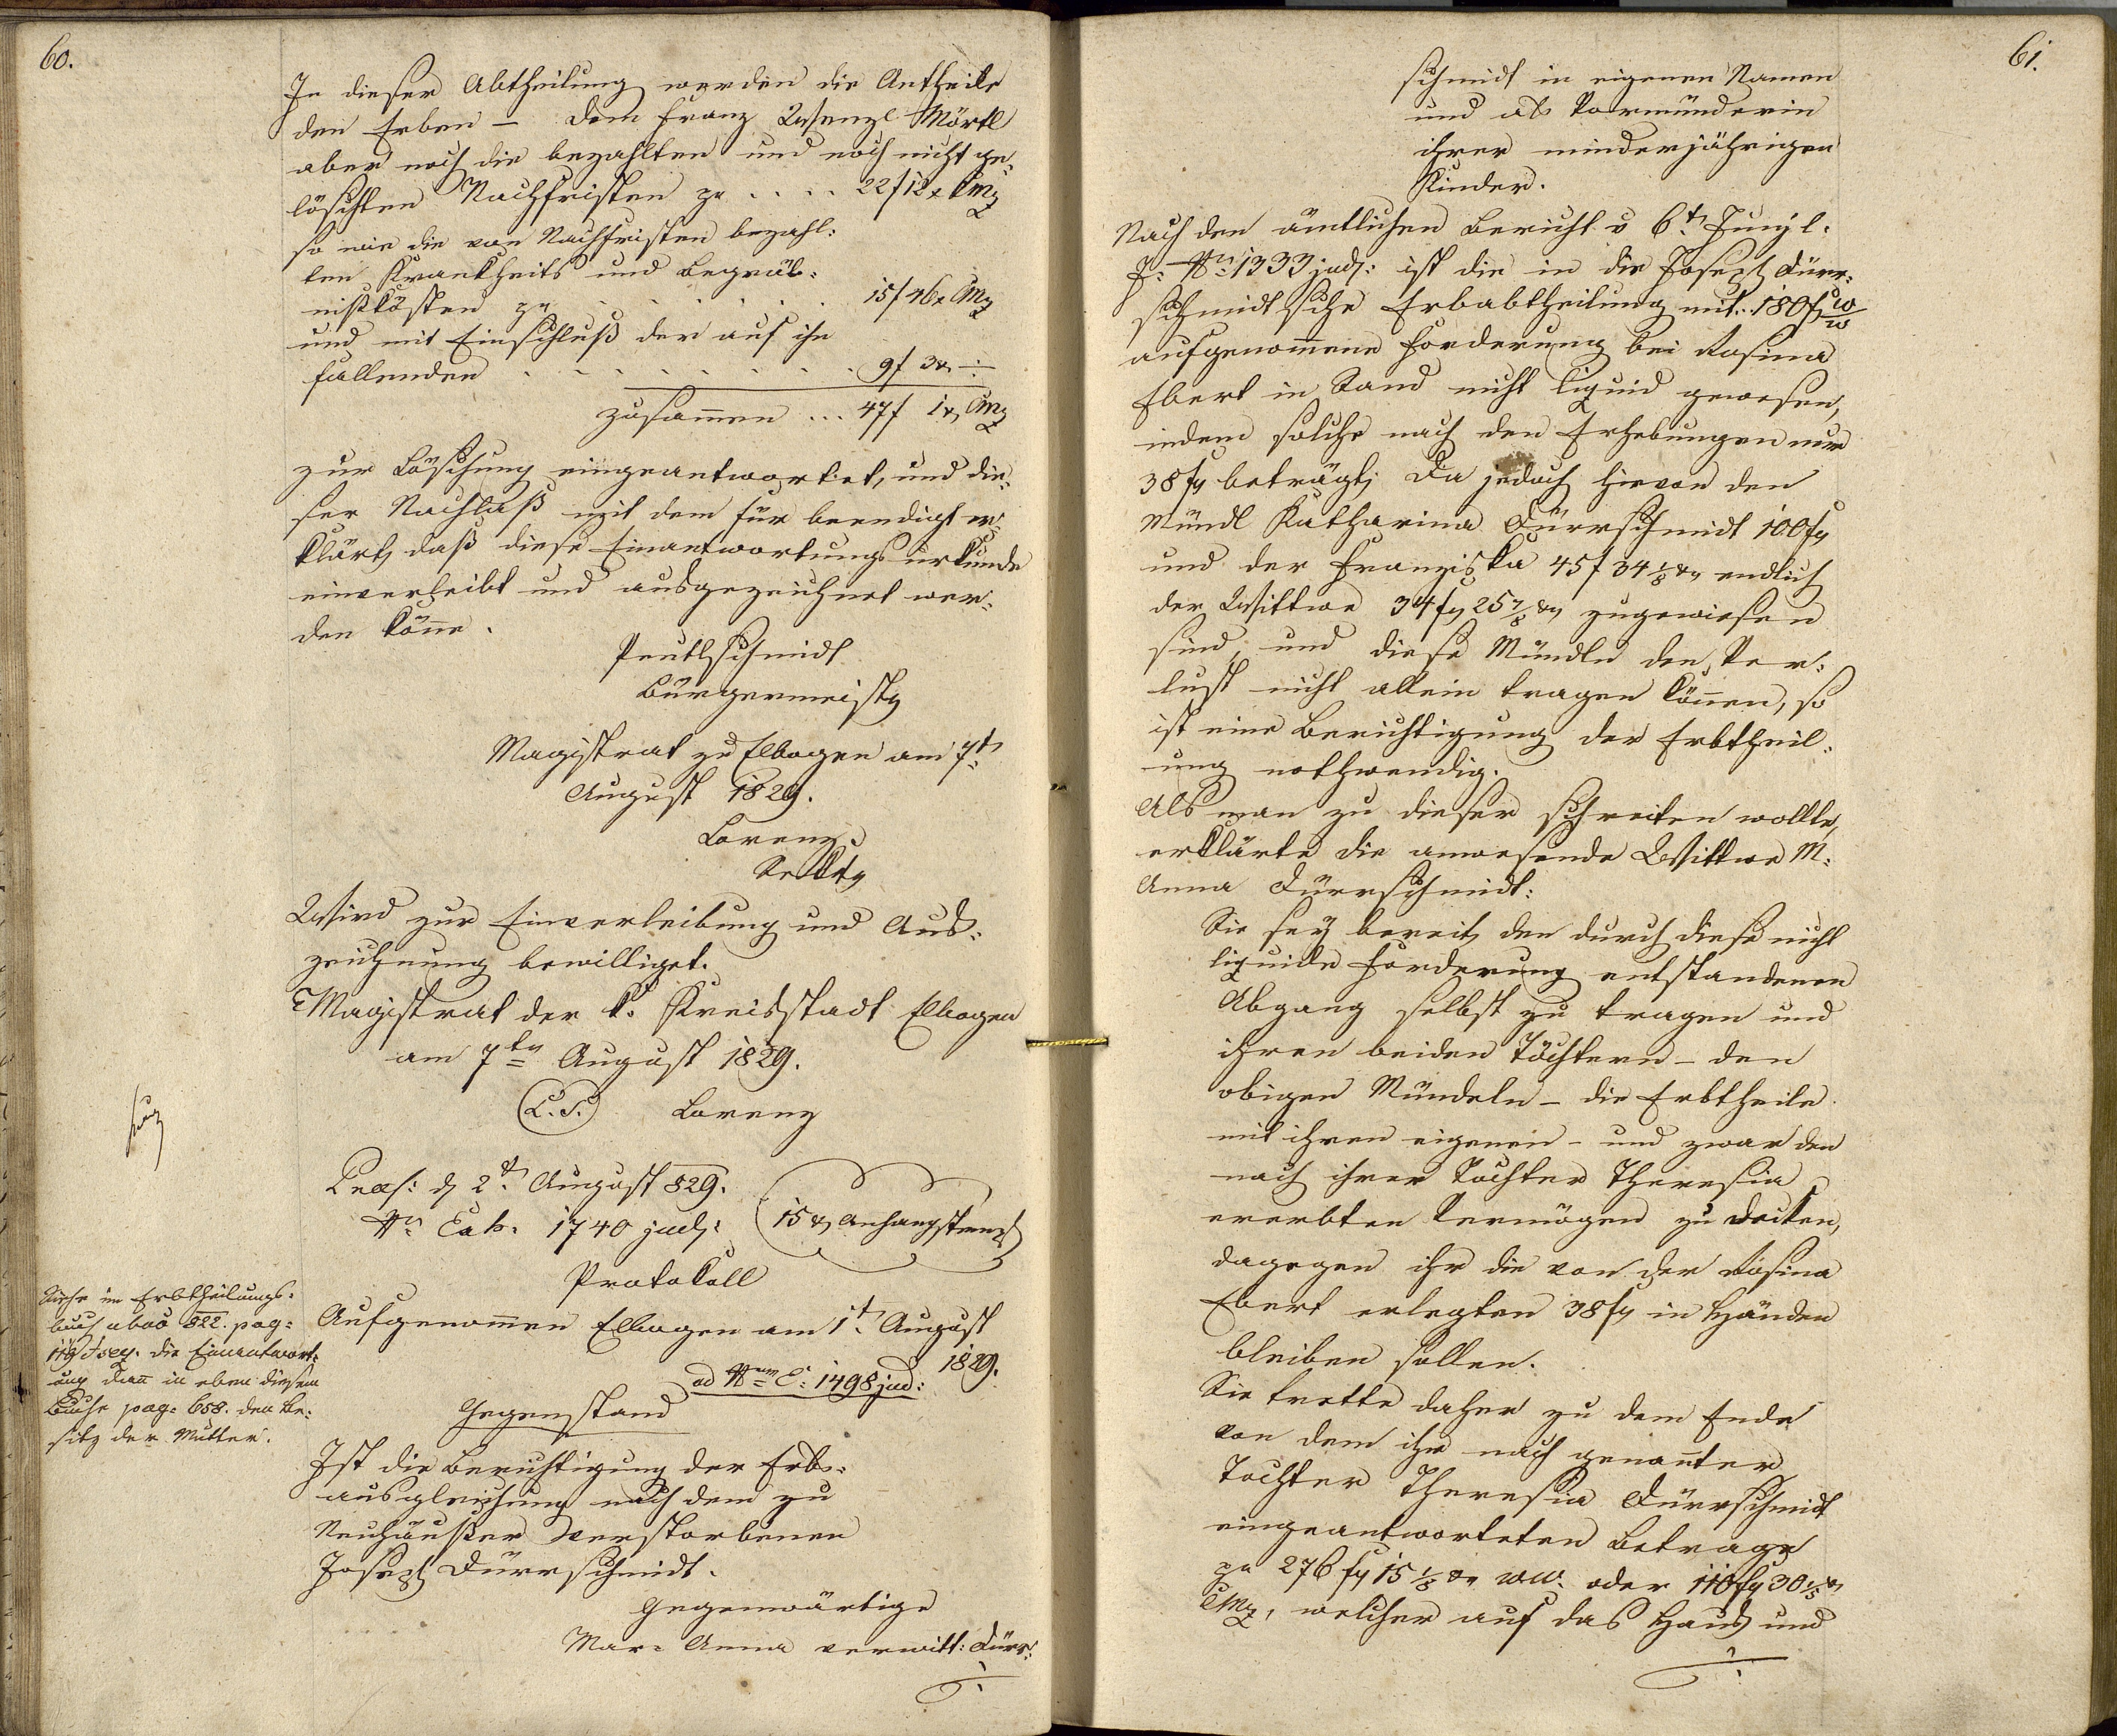 60.
In dieser Abtheilung werden die Antheile
den Erben – dem Franz Wenzl Mörtl
aber noch die bezahlten und noch nicht ge-
löschten Nachfristen pr .... 22 f 12 x CMz
so wie die von Nachfristen bezahl:
ten Krankheits und Begräb:
nißkösten pr ....... 15 f 46 x CMz
und mit Einschluß der auf ihn
fallenden ......... 9 f 3 x ÷
zusamen ... 47 f 1 x CMz
zur Löschung eingeantwortet, und die:
ser Nachlaß mit dem für beendigt er:
klärt, daß diese Einantwortungs urkunde
einverleibt und ausgezeichnet wer:
den köne.
Peutlschmidt
Bürgermeistr
Magistrat zu Elbogen am 7t
August 1829.
Lorenz
Sekltr
Wird zur Einverleibung und Aus:
zeichnung bewilliget.
Magistrat der k. Kreisstadt Elbogen
am 7ten August 1829.
L.S. Lorenz
Praes: d 2t August 829.
Nr Exh. 1740 judl:
15 x Anhangstempl
Protokoll
Siehe im Erbtheilungs:
buch abao 822. pag:
119 &seq. die Einantwort:
ung dan in eben diesem
Buche pag: 658. den Be:
sitz der Mutter.
Aufgenomen Elbogen am 1t August
1829.
ad Nrum E: 1498 jud:
Gegenstand
Ist die Berichtigung der Erbs-
ausgleichung nach dem zu
Neuhäußer verstorbenen
Joseph Dürrschmidt.
Gegenwärtige
Mar: Anna verwitt: Dürr:
61.
schmidt in eigenen Namen
und als Vormünderin
ihrer minderjährigen
Kinder.
Nach den ämtlichen Bericht v 6t Juny l:
J: Nr 1333 judl: ist die in die Joseph Dürr:
schmidtsche Erbabtheilung mit .. 180 f WW
aufgenomene Forderung bei Rosina
Ebert in Sand nicht liquid gewesen,
indem solche nach den Erhebungen nur
38 fr beträgt; Da jedoch hievon den
Mündl Katharina Dürrschmidt 100 fr
und der Franziska 45 f 34 1/8 x endlich
der Wittwe 34 fr 25 7/8 x zugewiesen
sind, und diese Mündln den Ver:
lust nicht allein tragen könen, so
ist eine Berichtigung der Erbtheil:
ung nothwendig.
Als man zu dieser schreiten wollte,
erklärte die anwesende Wittwe M:
Anna Dürrschmidt:
Sie sey bereit, den durch diese nicht
liquide Forderung entstandenen
Abgang selbst zu tragen und
ihren beiden Töchtern – den
obigen Mündeln – die Erbtheile
mit ihren eigenen – und zwar den
nach ihrer Tochter Theresia
ererbten Vermögen zu decken,
dagegen ihr die von der Rosina
Ebert erlegten 38 fr in Händen
bleiben sollen.
Sie trette daher zu dem Ende
von dem ihr nach genanter
Tochter Theresia Dürrschmidt
eingeantworteten Betrage
pr 276 fr 15 1/8 x WW. oder 110 fr 30 1/5 x
CMz, welcher auf das Haus und